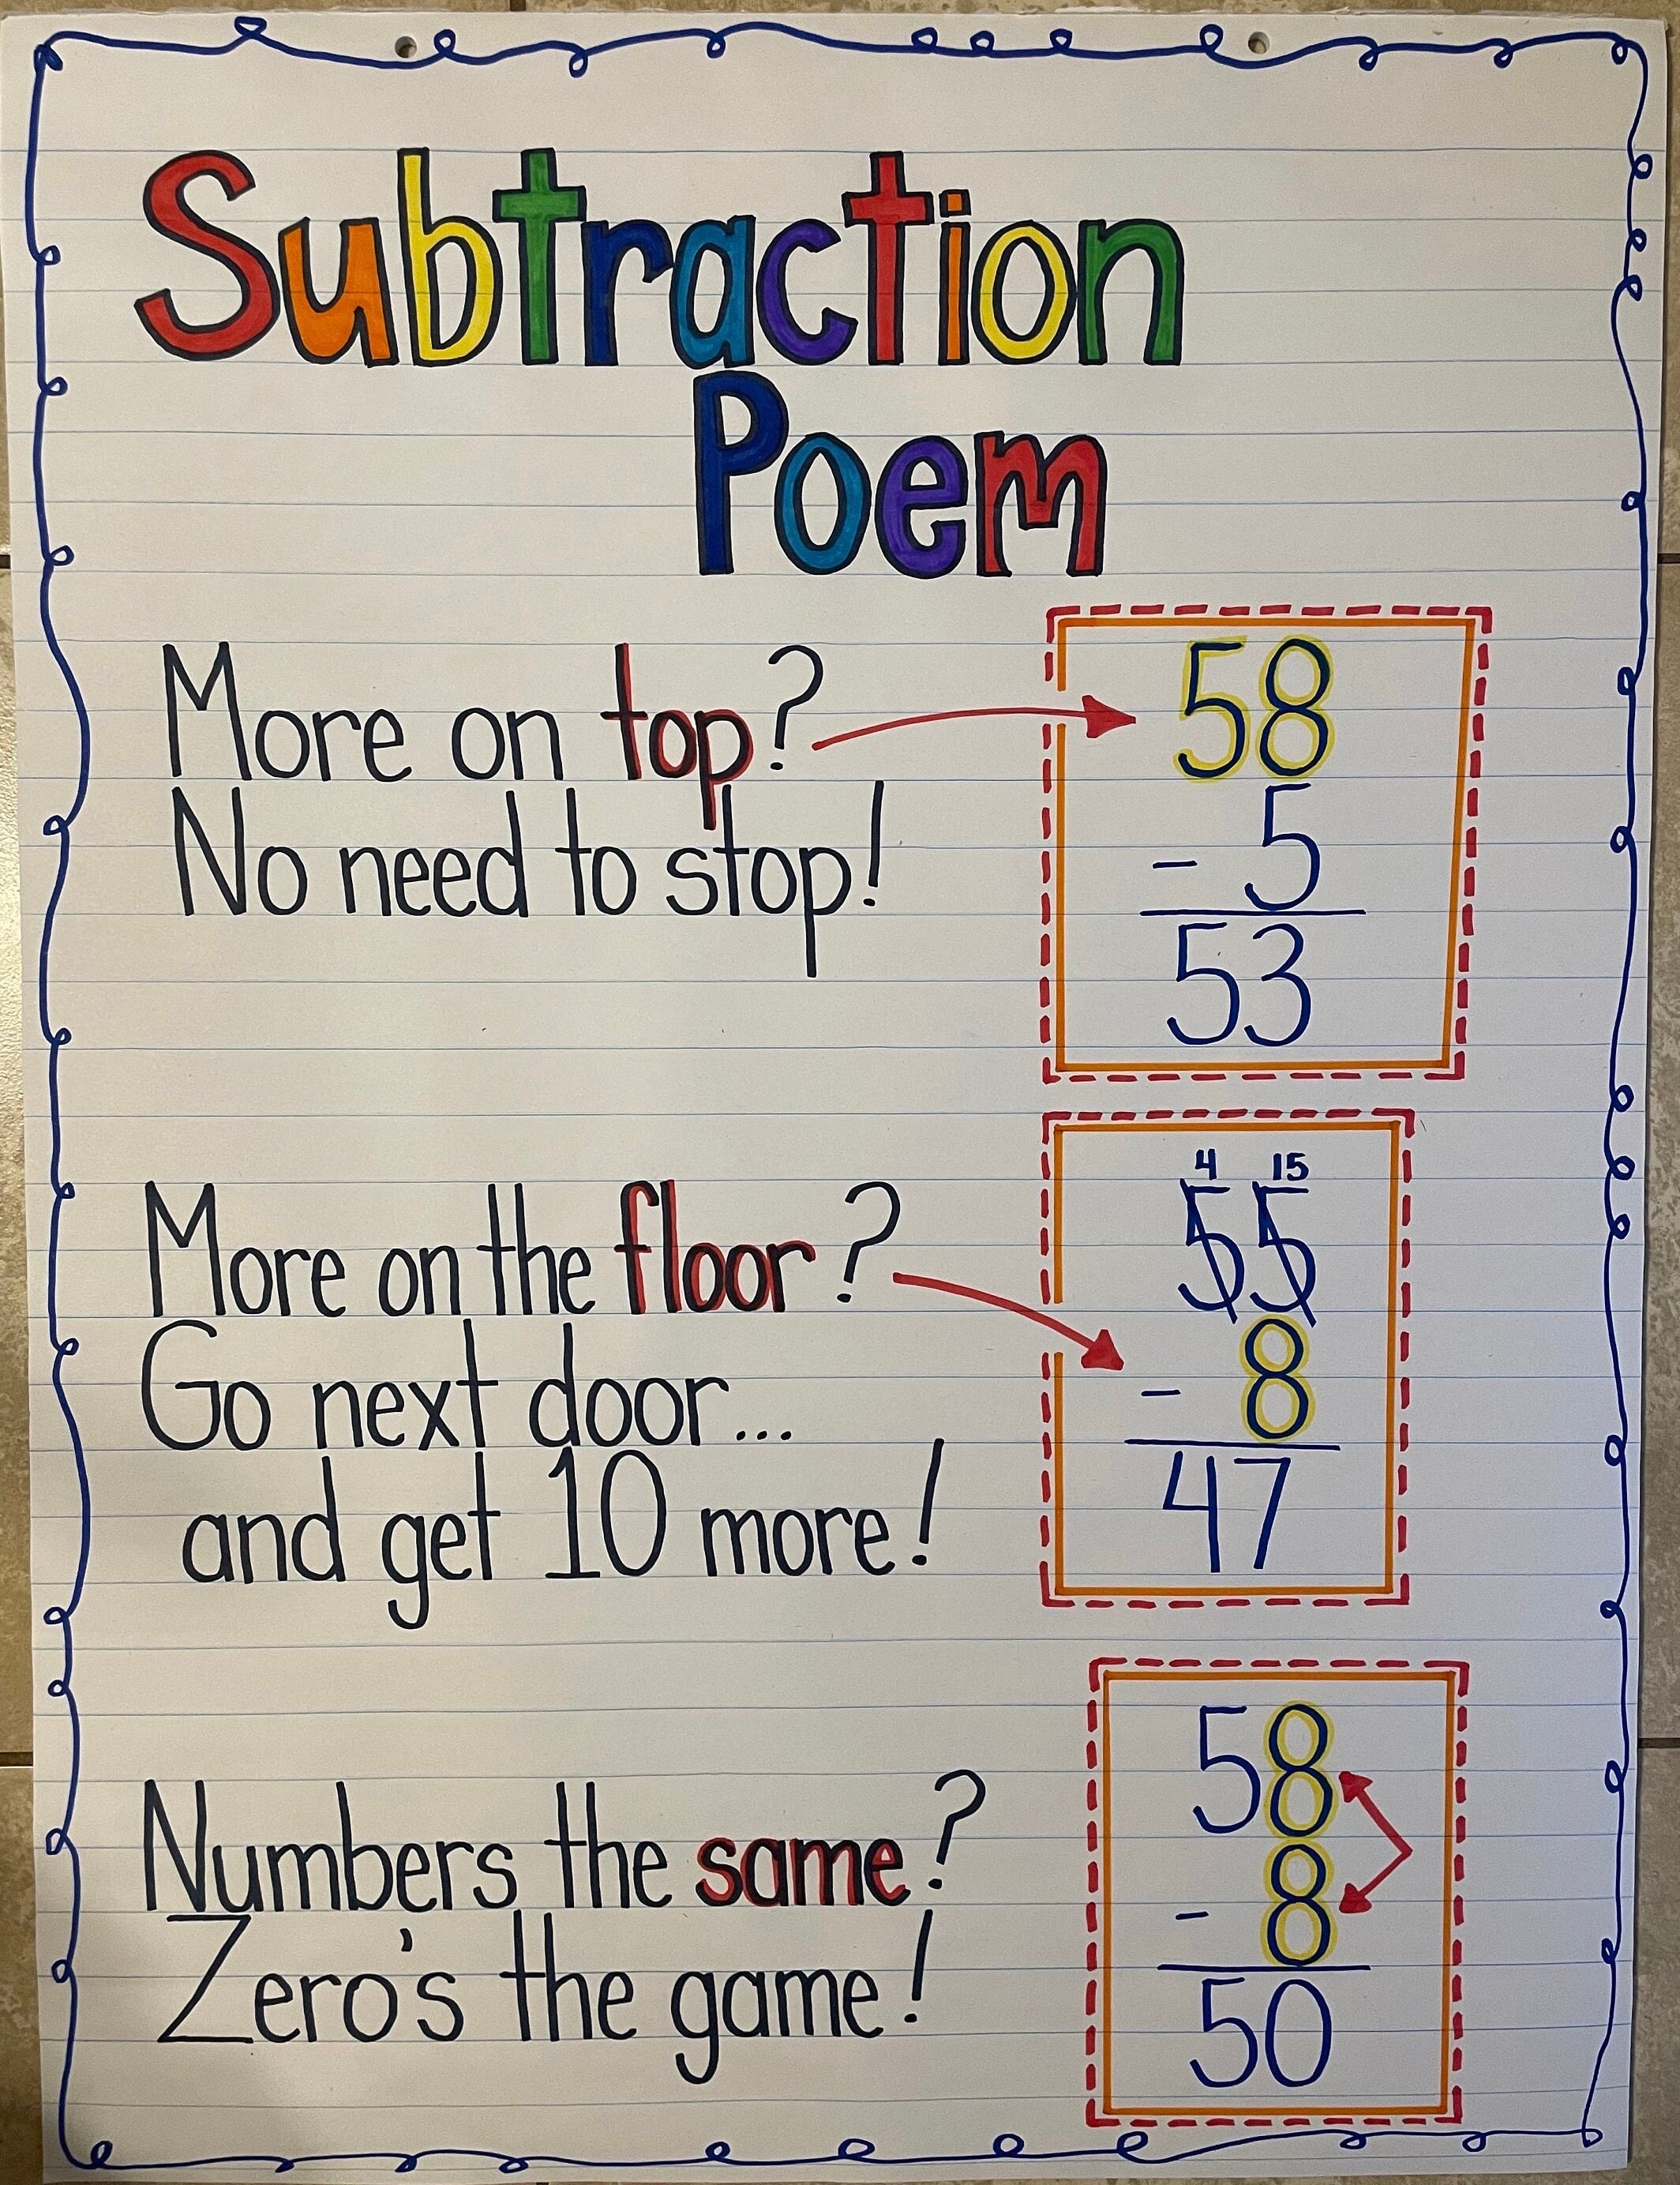 Subtraction
Poem
More on top?
No need to stop!
58
- 5
53
More on the floor?
Go next door...
and get 10 more!
4 15
55
- 8
47
Numbers the same?
Zero's the game!
58
- 8
50